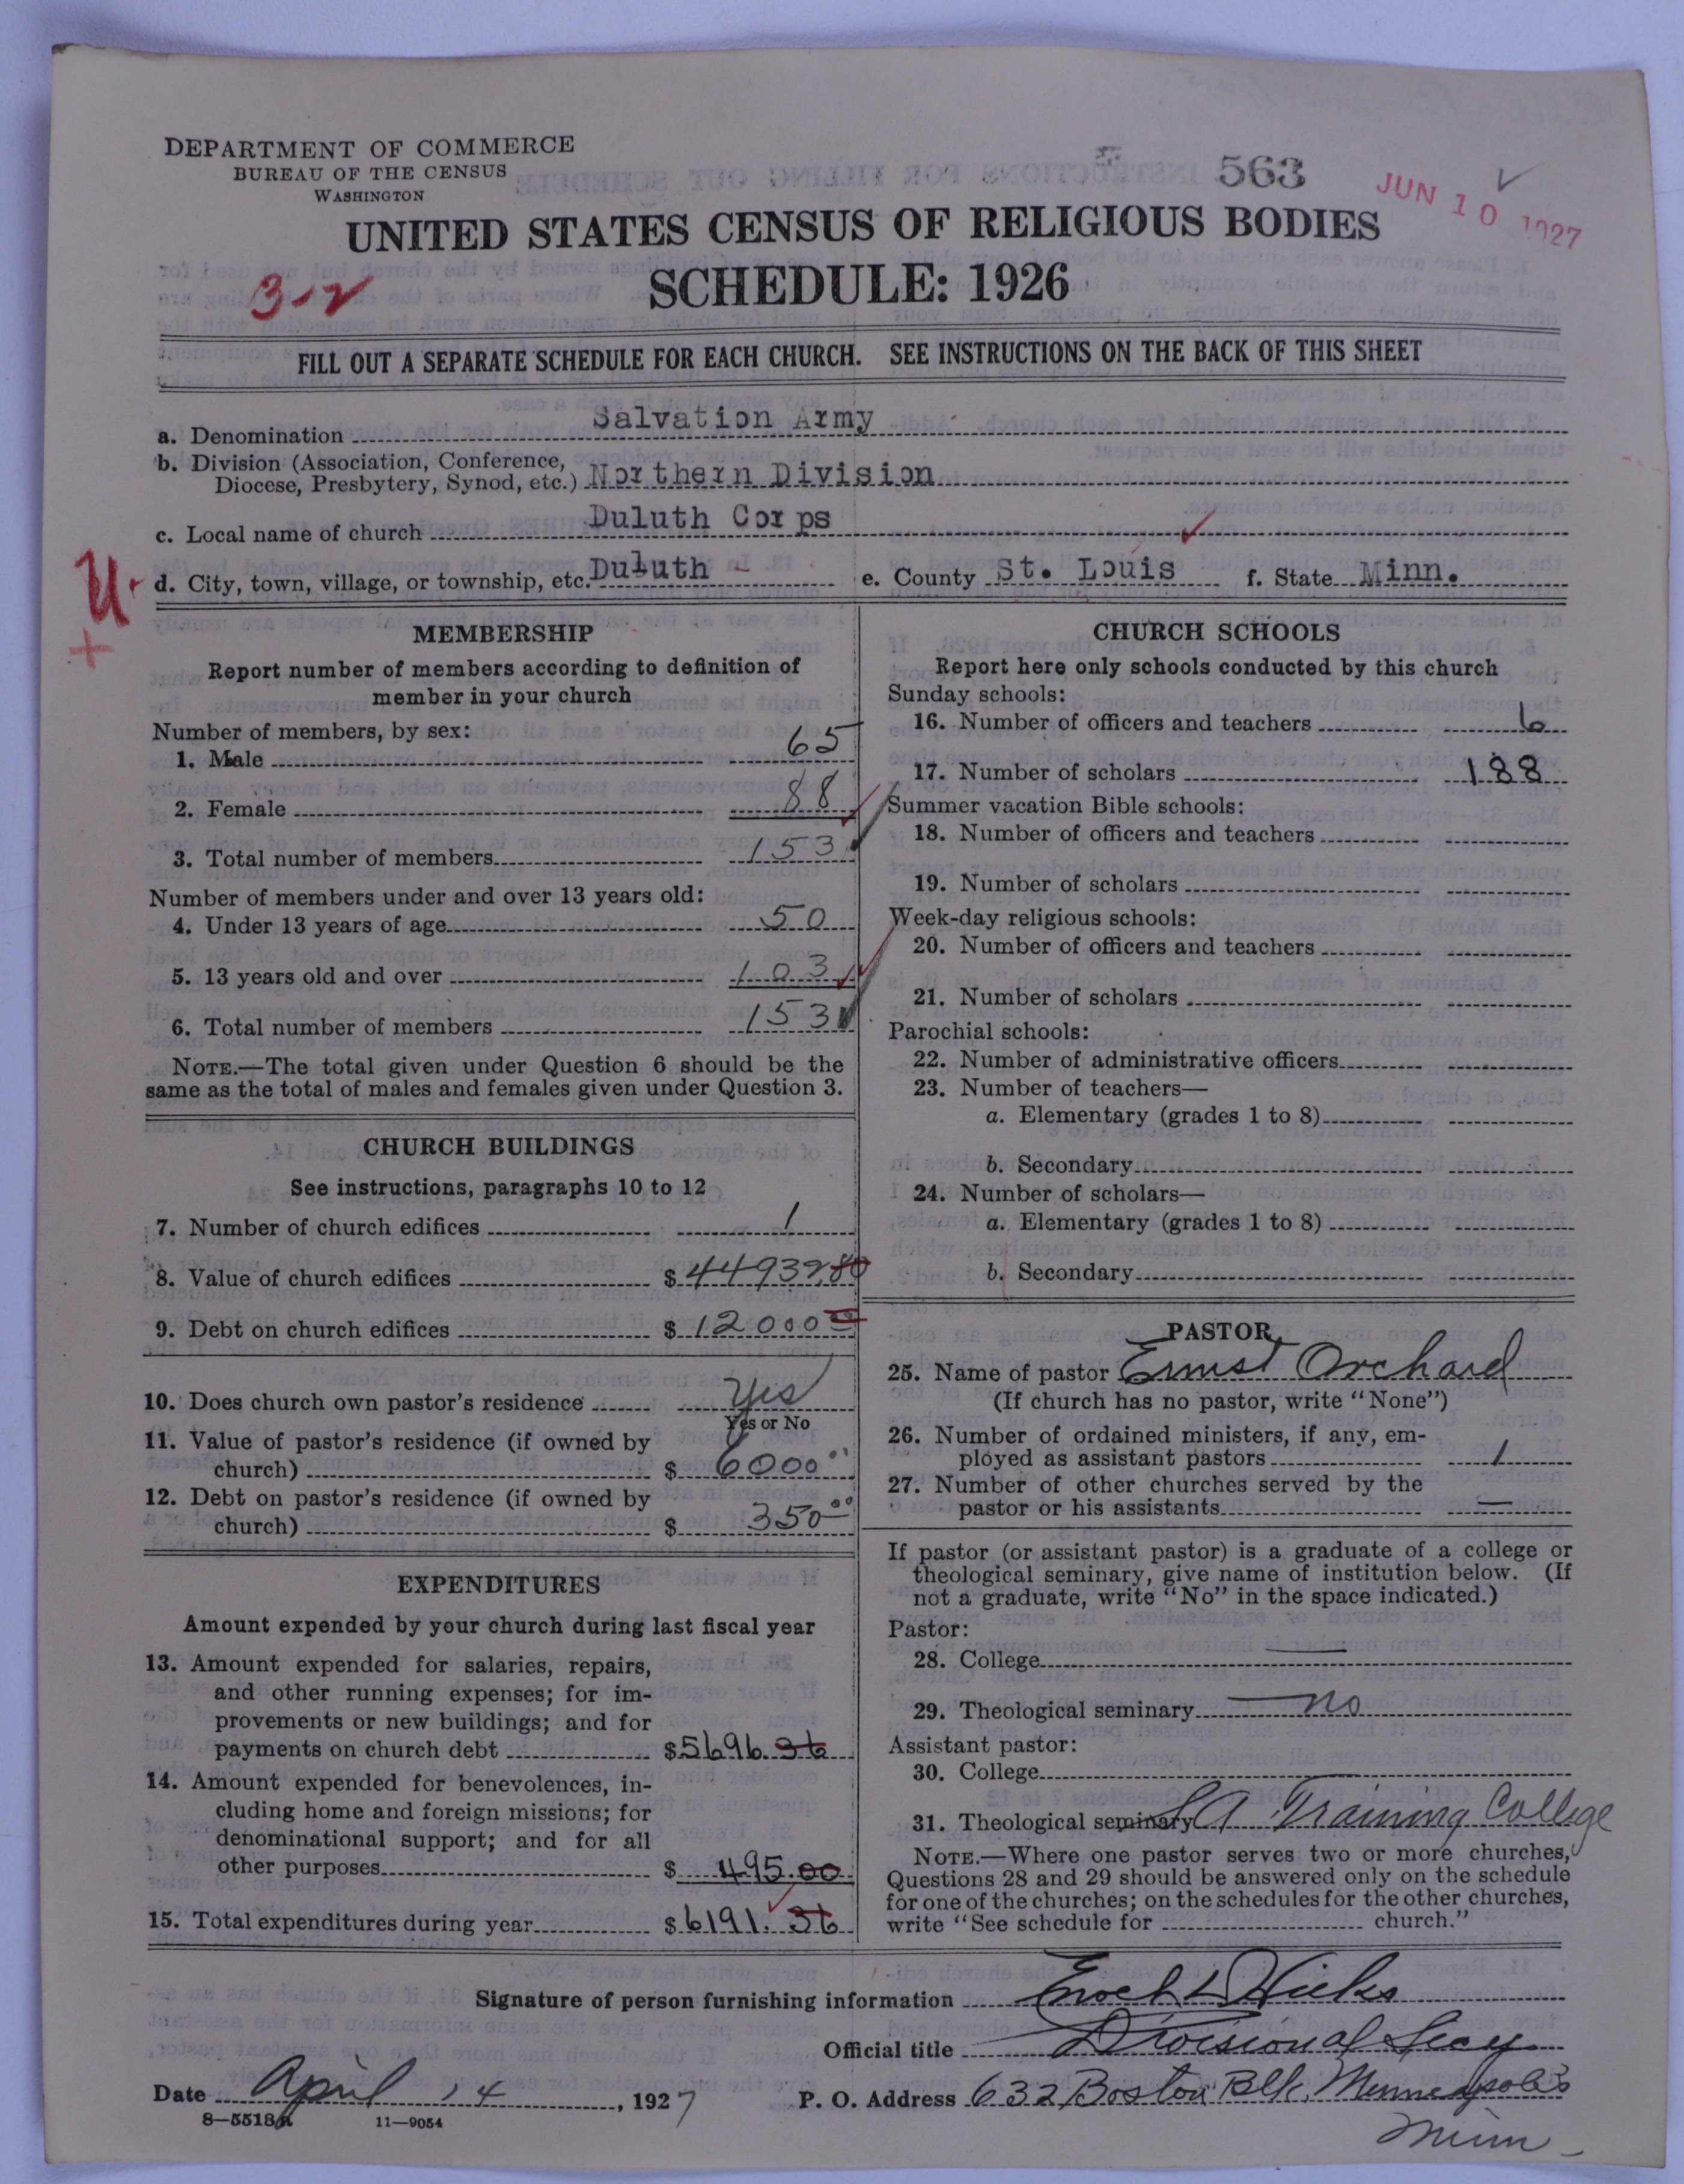 DEPARTMENT OF COMMERCE
BUREAU OF THE CENSUS
WASHINGTON
563
JUN 10 1927
UNITED STATES CENSUS OF RELIGIOUS BODIES
SCHEDULE: 1926
3-2
FILL OUT A SEPARATE SCHEDULE FOR EACH CHURCH. SEE INSTRUCTIONS ON THE BACK OF THIS SHEET
a. Denomination Salvation Army
b. Division (Association, Conference,
Diocese, Presbytery, Synod, etc.) Northern Division
c. Local name of church Duluth Corps
U.
+
d. City, town, village, or township, etc. Duluth e. County St. Louis f. State Minn.
MEMBERSHIP
Report number of members according to definition of
member in your church
Number of members, by sex:
1. Male 65
2. Female 88
3. Total number of members 153
Number of members under and over 13 years old:
4. Under 13 years of age 50
5. 13 years old and over 103
6. Total number of members 153
NOTE.—The total given under Question 6 should be the
same as the total of males and females given under Question 3.
CHURCH BUILDINGS
See instructions, paragraphs 10 to 12
7. Number of church edifices 1
8. Value of church edifices $ 44932.80
9. Debt on church edifices $ 12000 00
10. Does church own pastor's residence Yes
Yes or No
11. Value of pastor's residence (if owned by
church) $ 6000 00
12. Debt on pastor's residence (if owned by
church) $ 350 00
EXPENDITURES
Amount expended by your church during last fiscal year
13. Amount expended for salaries, repairs,
and other running expenses; for im-
provements or new buildings; and for
payments on church debt $ 5696.36
14. Amount expended for benevolences, in-
cluding home and foreign missions; for
denominational support; and for all
other purposes $ 495.00
15. Total expenditures during year $ 6191.36
CHURCH SCHOOLS
Report here only schools conducted by this church
Sunday schools:
16. Number of officers and teachers 6
17. Number of scholars 188
Summer vacation Bible schools:
18. Number of officers and teachers
19. Number of scholars
Week-day religious schools:
20. Number of officers and teachers
21. Number of scholars
Parochial schools:
22. Number of administrative officers
23. Number of teachers—
a. Elementary (grades 1 to 8)
b. Secondary
24. Number of scholars—
a. Elementary (grades 1 to 8)
b. Secondary
PASTOR
25. Name of pastor Ernst Orchard
(If church has no pastor, write "None")
26. Number of ordained ministers, if any, em-
ployed as assistant pastors 1
27. Number of other churches served by the
pastor or his assistants —
If pastor (or assistant pastor) is a graduate of a college or
theological seminary, give name of institution below. (If
not a graduate, write "No" in the space indicated.)
Pastor:
28. College —
29. Theological seminary — no
Assistant pastor:
30. College
31. Theological seminary S A Training College
NOTE.—Where one pastor serves two or more churches,
Questions 28 and 29 should be answered only on the schedule
for one of the churches; on the schedules for the other churches,
write "See schedule for church."
Signature of person furnishing information Enoch L Hicks
Official title Divisional Secy
Date April 14, 1927 P. O. Address 632 Boston Blk, Minneapolis
Minn
8—5518a 11—9054